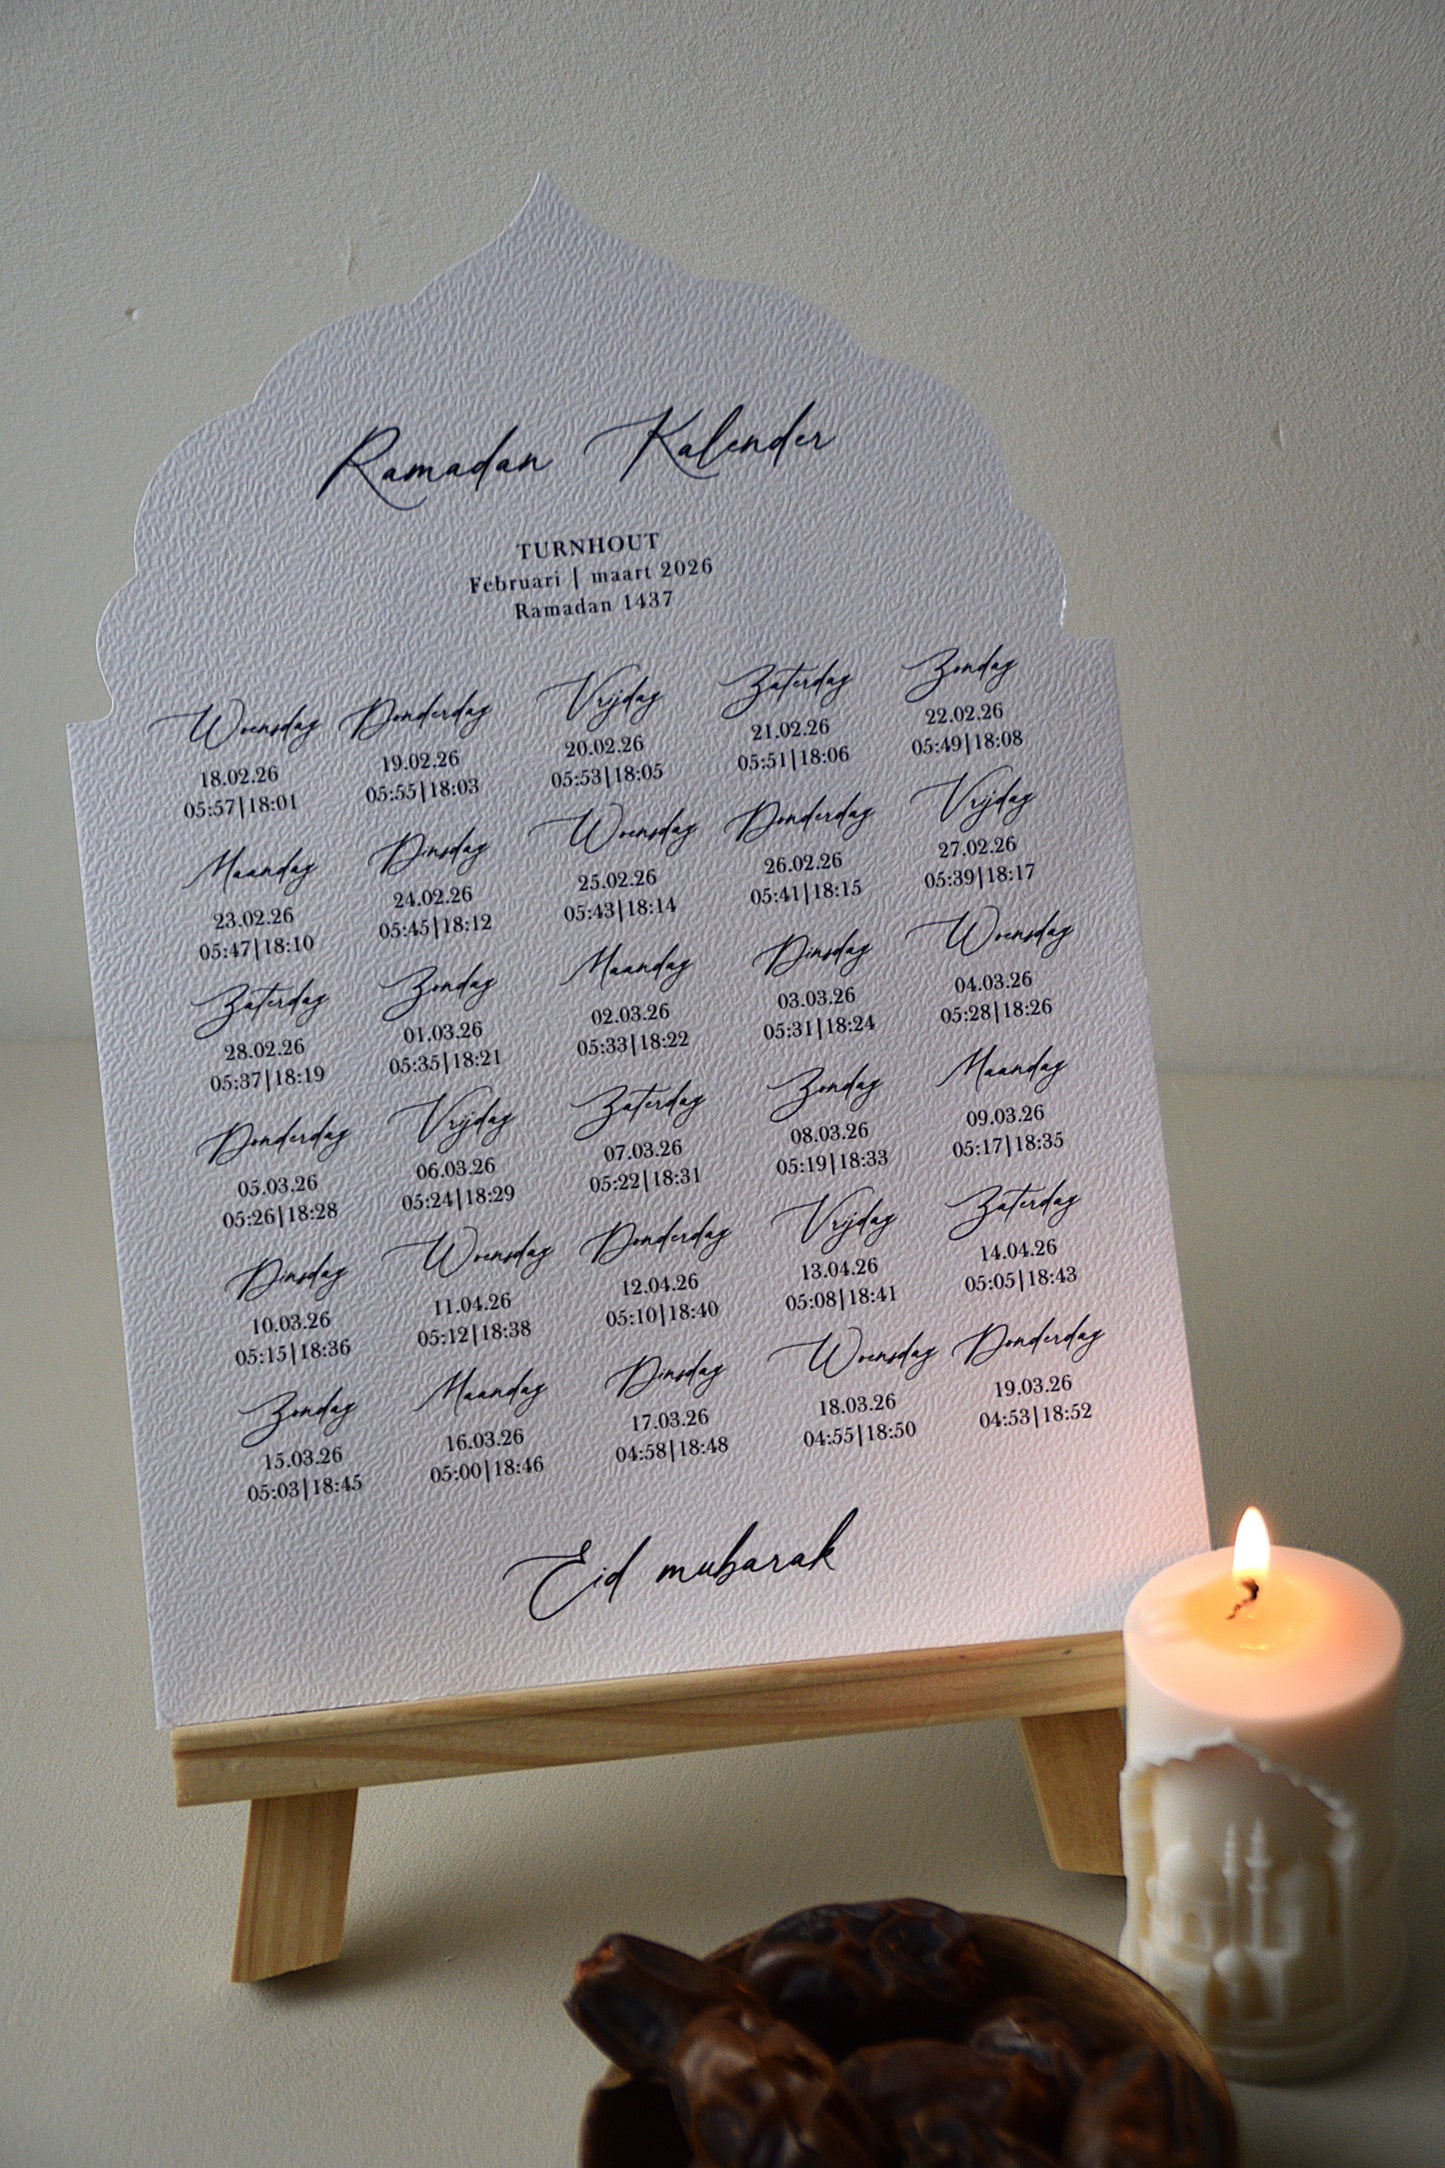 Ramadan Kalender
TURNHOUT
Februari | maart 2026
Ramadan 1437
Woensdag Donderdag Vrijdag Zaterdag Zondag
18.02.26 19.02.26 20.02.26 21.02.26 22.02.26
05:57|18:01 05:55|18:03 05:53|18:05 05:51|18:06 05:49|18:08
Maandag Dinsdag Woensdag Donderdag Vrijdag
23.02.26 24.02.26 25.02.26 26.02.26 27.02.26
05:47|18:10 05:45|18:12 05:43|18:14 05:41|18:15 05:39|18:17
Zaterdag Zondag Maandag Dinsdag Woensdag
28.02.26 01.03.26 02.03.26 03.03.26 04.03.26
05:37|18:19 05:35|18:21 05:33|18:22 05:31|18:24 05:28|18:26
Donderdag Vrijdag Zaterdag Zondag Maandag
05.03.26 06.03.26 07.03.26 08.03.26 09.03.26
05:26|18:28 05:24|18:29 05:22|18:31 05:19|18:33 05:17|18:35
Dinsdag Woensdag Donderdag Vrijdag Zaterdag
10.03.26 11.04.26 12.04.26 13.04.26 14.04.26
05:15|18:36 05:12|18:38 05:10|18:40 05:08|18:41 05:05|18:43
Zondag Maandag Dinsdag Woensdag Donderdag
15.03.26 16.03.26 17.03.26 18.03.26 19.03.26
05:03|18:45 05:00|18:46 04:58|18:48 04:55|18:50 04:53|18:52
Eid mubarak